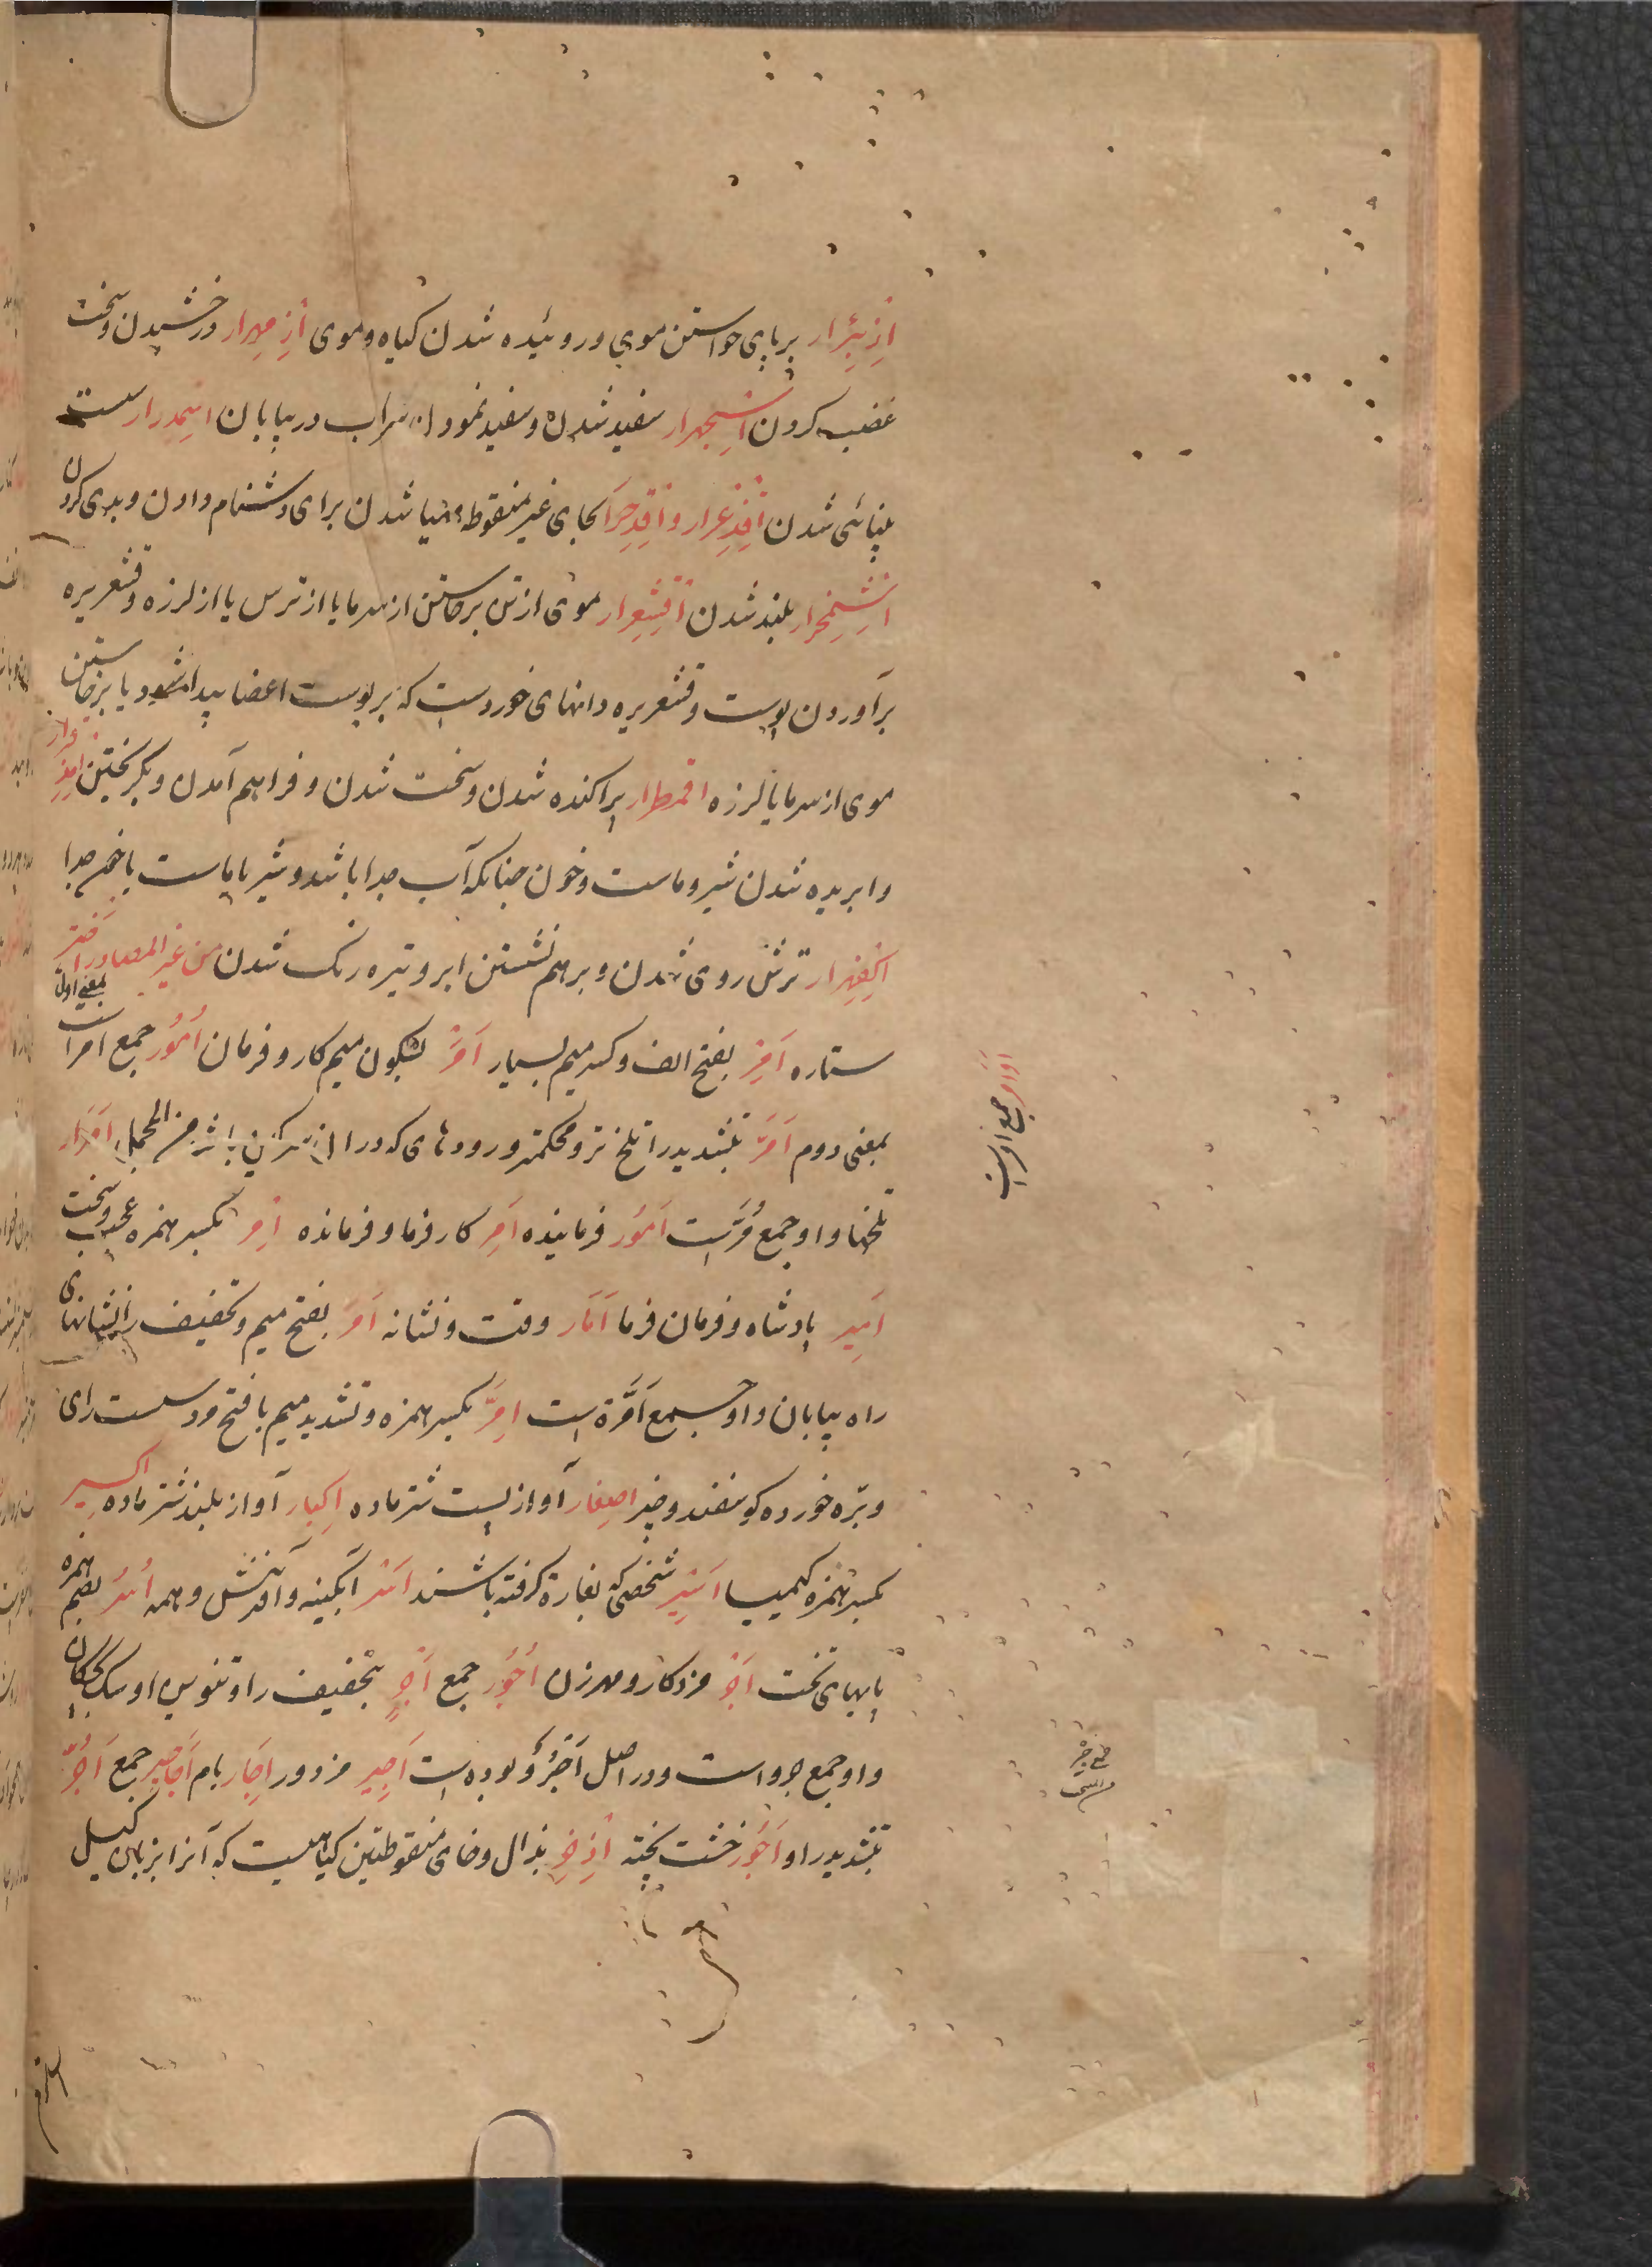 اِزبِئرار برپای خواستن موی و روئیده شدن کیاه و موی اِزمِهرار درخشیدن و سخت
غضب کردن اِسجِهرار سفید شدن و سفید نمودن سراب در بیابان اِسمِدرار سست
بینائی شدن اِقذِعرار و اِقذِحرار بحای غیر منقوطه مهیا شدن برای دشنام دادن و بدی کردن
اِشمِخرار بلند شدن اِقشِعرار موی از تن برخاستن از سرما یا از ترس یا از لرزه و قشعریره
برآوردن پوست و قشعریره دانهای خوردست که بر پوست اعضا پیدا شود یا برخاستن
موی از سرما یا لرزه اقمطرار پراکنده شدن و سخت شدن و فراهم آمدن و بکریختن اِمذِقرار
وا بریده شدن شیر و ماست و خون چنانکه آب جدا باشد و شیر یا ماست یا خون جدا
اِکفِهرار ترش روی شدن و برهم نشستن ابر و تیره رنک شدن من غیر المصادر اختر
ستاره اَمِر بفتح الف و کسر میم بسیار اَمر بسکون میم کار و فرمان اُمُور جمع امر است بمعنی اول
بمعنی دوم اَمَرّ بتشدید را تلخ تر و محکمتر و رودهای که در ان سرکین باشد من المجمل اَمرار
تلخها و او جمع مُرّ است اَمُور فرماینده آمِر کارفرما و فرمانده اِمر بکسر همزه عجب و سخت
اَمِیر پادشاه و فرمان فرما اَمَار وقت و نشانه اَمَر بفتح میم و تخفیف را نشانهای
راه بیابان و او جمع اَمَرَة است اِمَّر بکسر همزه و تشدید میم با فتح مرد سست رای
و بره خورده کوسفند و خر اصغار آواز پست شتر ماده اِکبار آواز بلند شتر ماده اکسیر
بکسر همزه کیمیا اَسِیر شخصی که بغارة کرفته باشند اَسر آبکینه و آفرینش و همه اُسُر بضم همزه
پایهای تخت اَجر مزد کار و مهر زن اُجُور جمع اَجرٍ بتخفیف را و تنوین او سک بچکان
و او جمع جرو است و در اصل اَجرُوٌ بوده است اَجِیر مزدور اِجّار بام اَجَاجِیر جمع آجُرّ
بتشدید را و آجُور خشت پخته اِذخِر بذال و خای منقوطتین کیاهیست که آنرا بزبان کیل
اَوَامِر جمع امر است